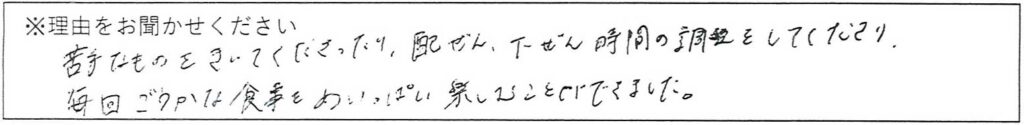 ※理由をお聞かせください
苦手なものをきいてくださったり、配ぜん、下ぜん時間の調整をしてくださり、
毎回ごうかな食事をめいっぱい楽しむことができました。